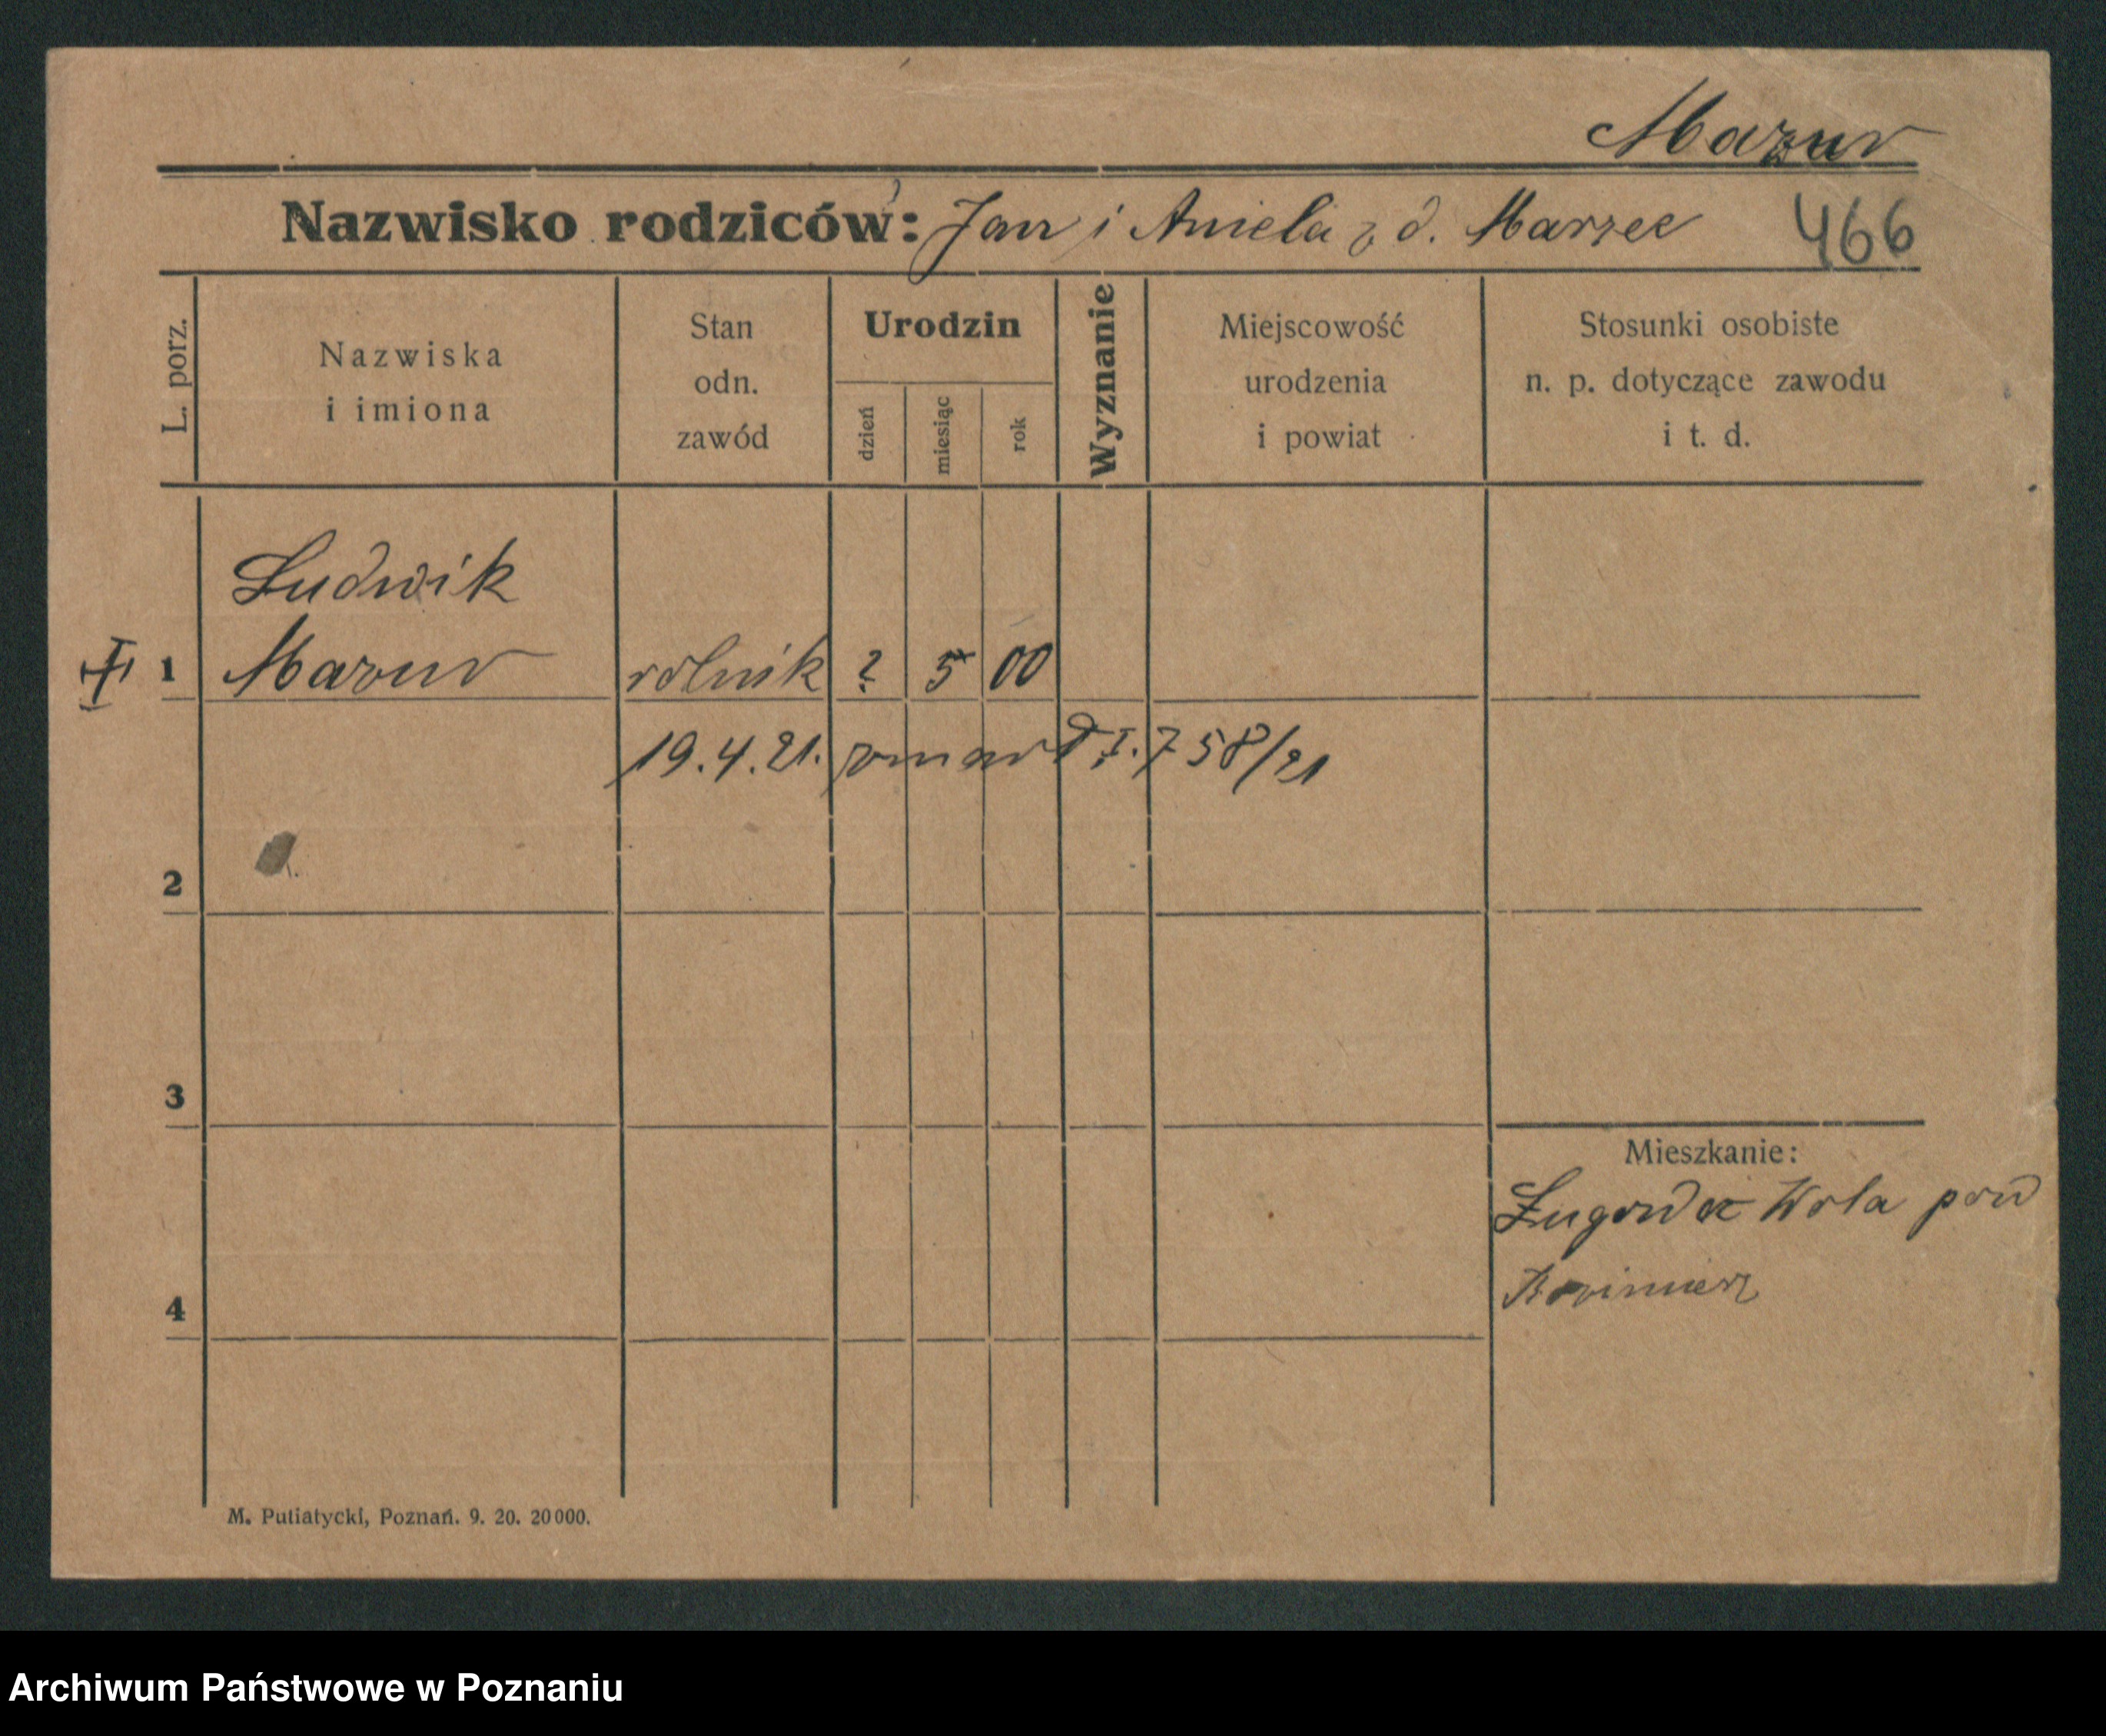 Mazur
Nazwisko rodziców: Jan i Aniela z d. Marzec 466
L. porz.
Nazwiska
i imiona
Stan
odn.
zawód
Urodzin
dzień
miesiąc
rok
Wyznanie
Miejscowość
urodzenia
i powiat
Stosunki osobiste
n. p. dotyczące zawodu
i t. d.
Ludwik
1 Mazur rolnik ? 5 00
19.4.21. zmarł I. 758/21
2
3
4
Mieszkanie:
Wola pow
M. Putiatycki, Poznań. 9. 20. 20000.
Archiwum Państwowe w Poznaniu